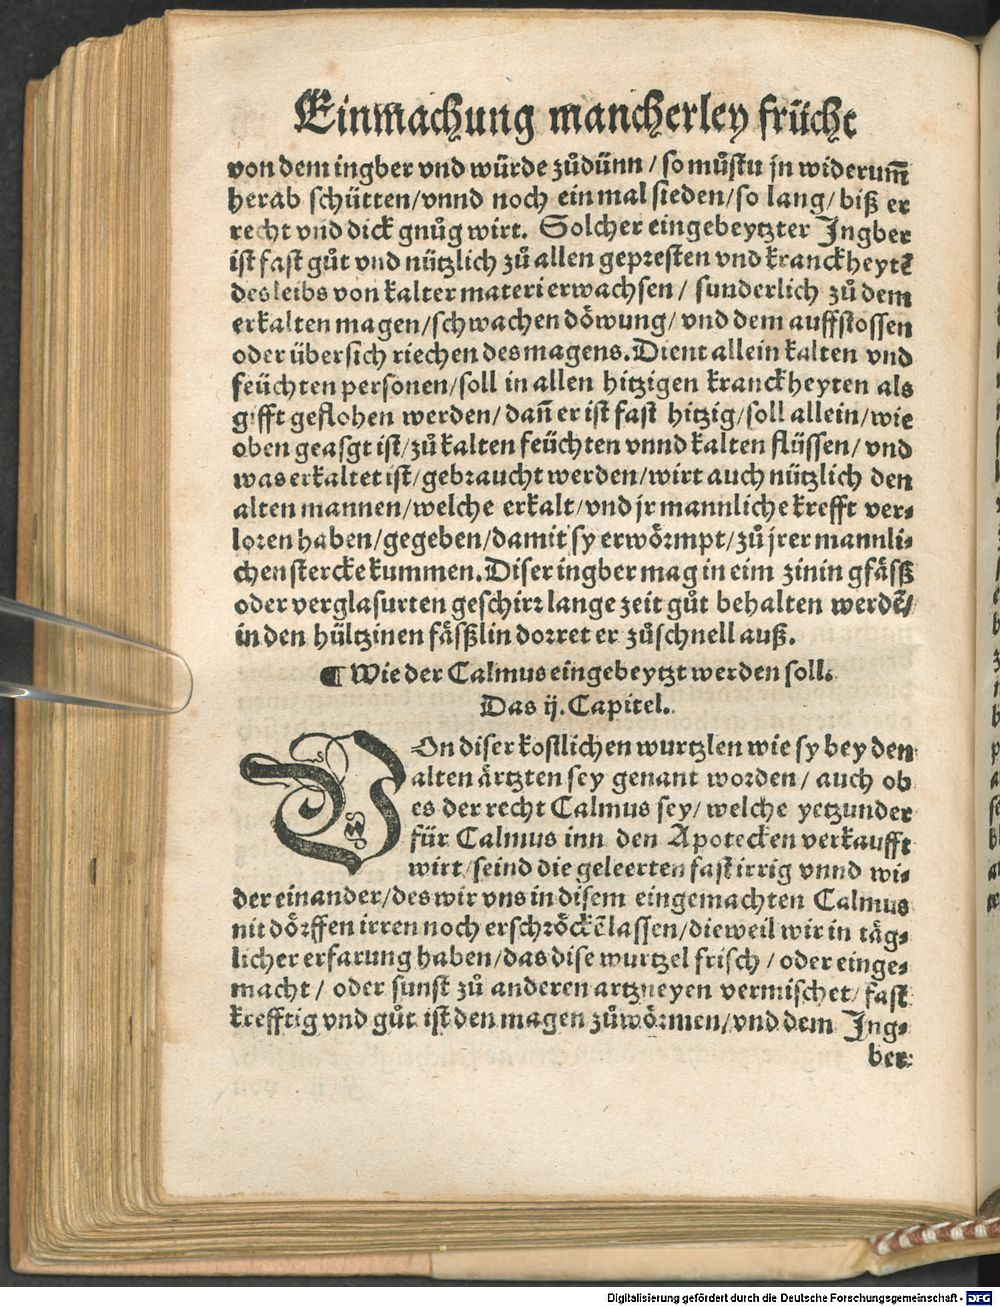 Einmachung mancherley frücht
von dem ingber vnd würde zůdünn / so můſtu jn widerum̃
herab schütten/vnnd noch ein mal sieden/so lang/ biß er
recht vnd dick gnůg wirt. Solcher eingebeytzter Jngber
iſt faſt gůt vnd nützlich zů allen gepreſten vnd kranckheytẽ
des leibs von kalter materi erwachſen / ſunderlich zů dem
erkalten magen/ſchwachen döwung/ vnd dem auffſtoſſen
oder überſich riechen des magens. Dient allein kalten vnd
feüchten perſonen/ſoll in allen hitzigen kranckheyten als
gifft geflohen werden/ dañ er iſt faſt hitzig/ſoll allein/wie
oben geaſgt iſt/zů kalten feüchten vnnd kalten flüſſen/ vnd
was erkaltet iſt/gebraucht werden/wirt auch nützlich den
alten mannen/welche erkalt/vnd jr mannliche krefft ver⸗
loren haben/gegeben/damit ſy erwörmpt/zů jrer mannli⸗
chen ſtercke kummen. Diſer ingber mag in eim zinin gfäſß
oder verglaſurten geſchirr lange zeit gůt behalten werdẽ/
in den hültzinen fäſßlin dorret er zůſchnell auß.
¶ Wie der Calmus eingebeytzt werden ſoll.
Das ij. Capitel.
VOn diſer koſtlichen wurtzlen wie ſy bey den
alten ärtzten ſey genant worden/ auch ob
es der recht Calmus ſey/ welche yetzunder
für Calmus inn den Apotecken verkaufft
wirt/ſeind die geleerten faſt irrig vnnd wi⸗
der einander/des wir vns in diſem eingemachten Calmus
nit dörffen irren noch erſchröckẽ laſſen/dieweil wir in täg⸗
licher erfarung haben/das diſe wurtzel friſch / oder einge⸗
macht / oder ſunſt zů anderen artzneyen vermiſchet/ faſt
krefftig vnd gůt iſt den magen zůwörmen/vnd dem Jng⸗
ber
Digitalisierung gefördert durch die Deutsche Forschungsgemeinschaft - DFG